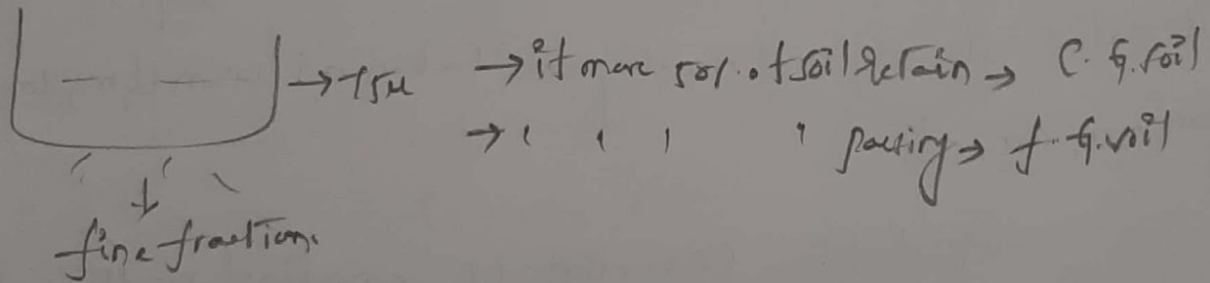 → 75μ → if more 50% of soil retain → C.G. soil
→ ' ' ' ' passing → f.G. soil
fine fraction.